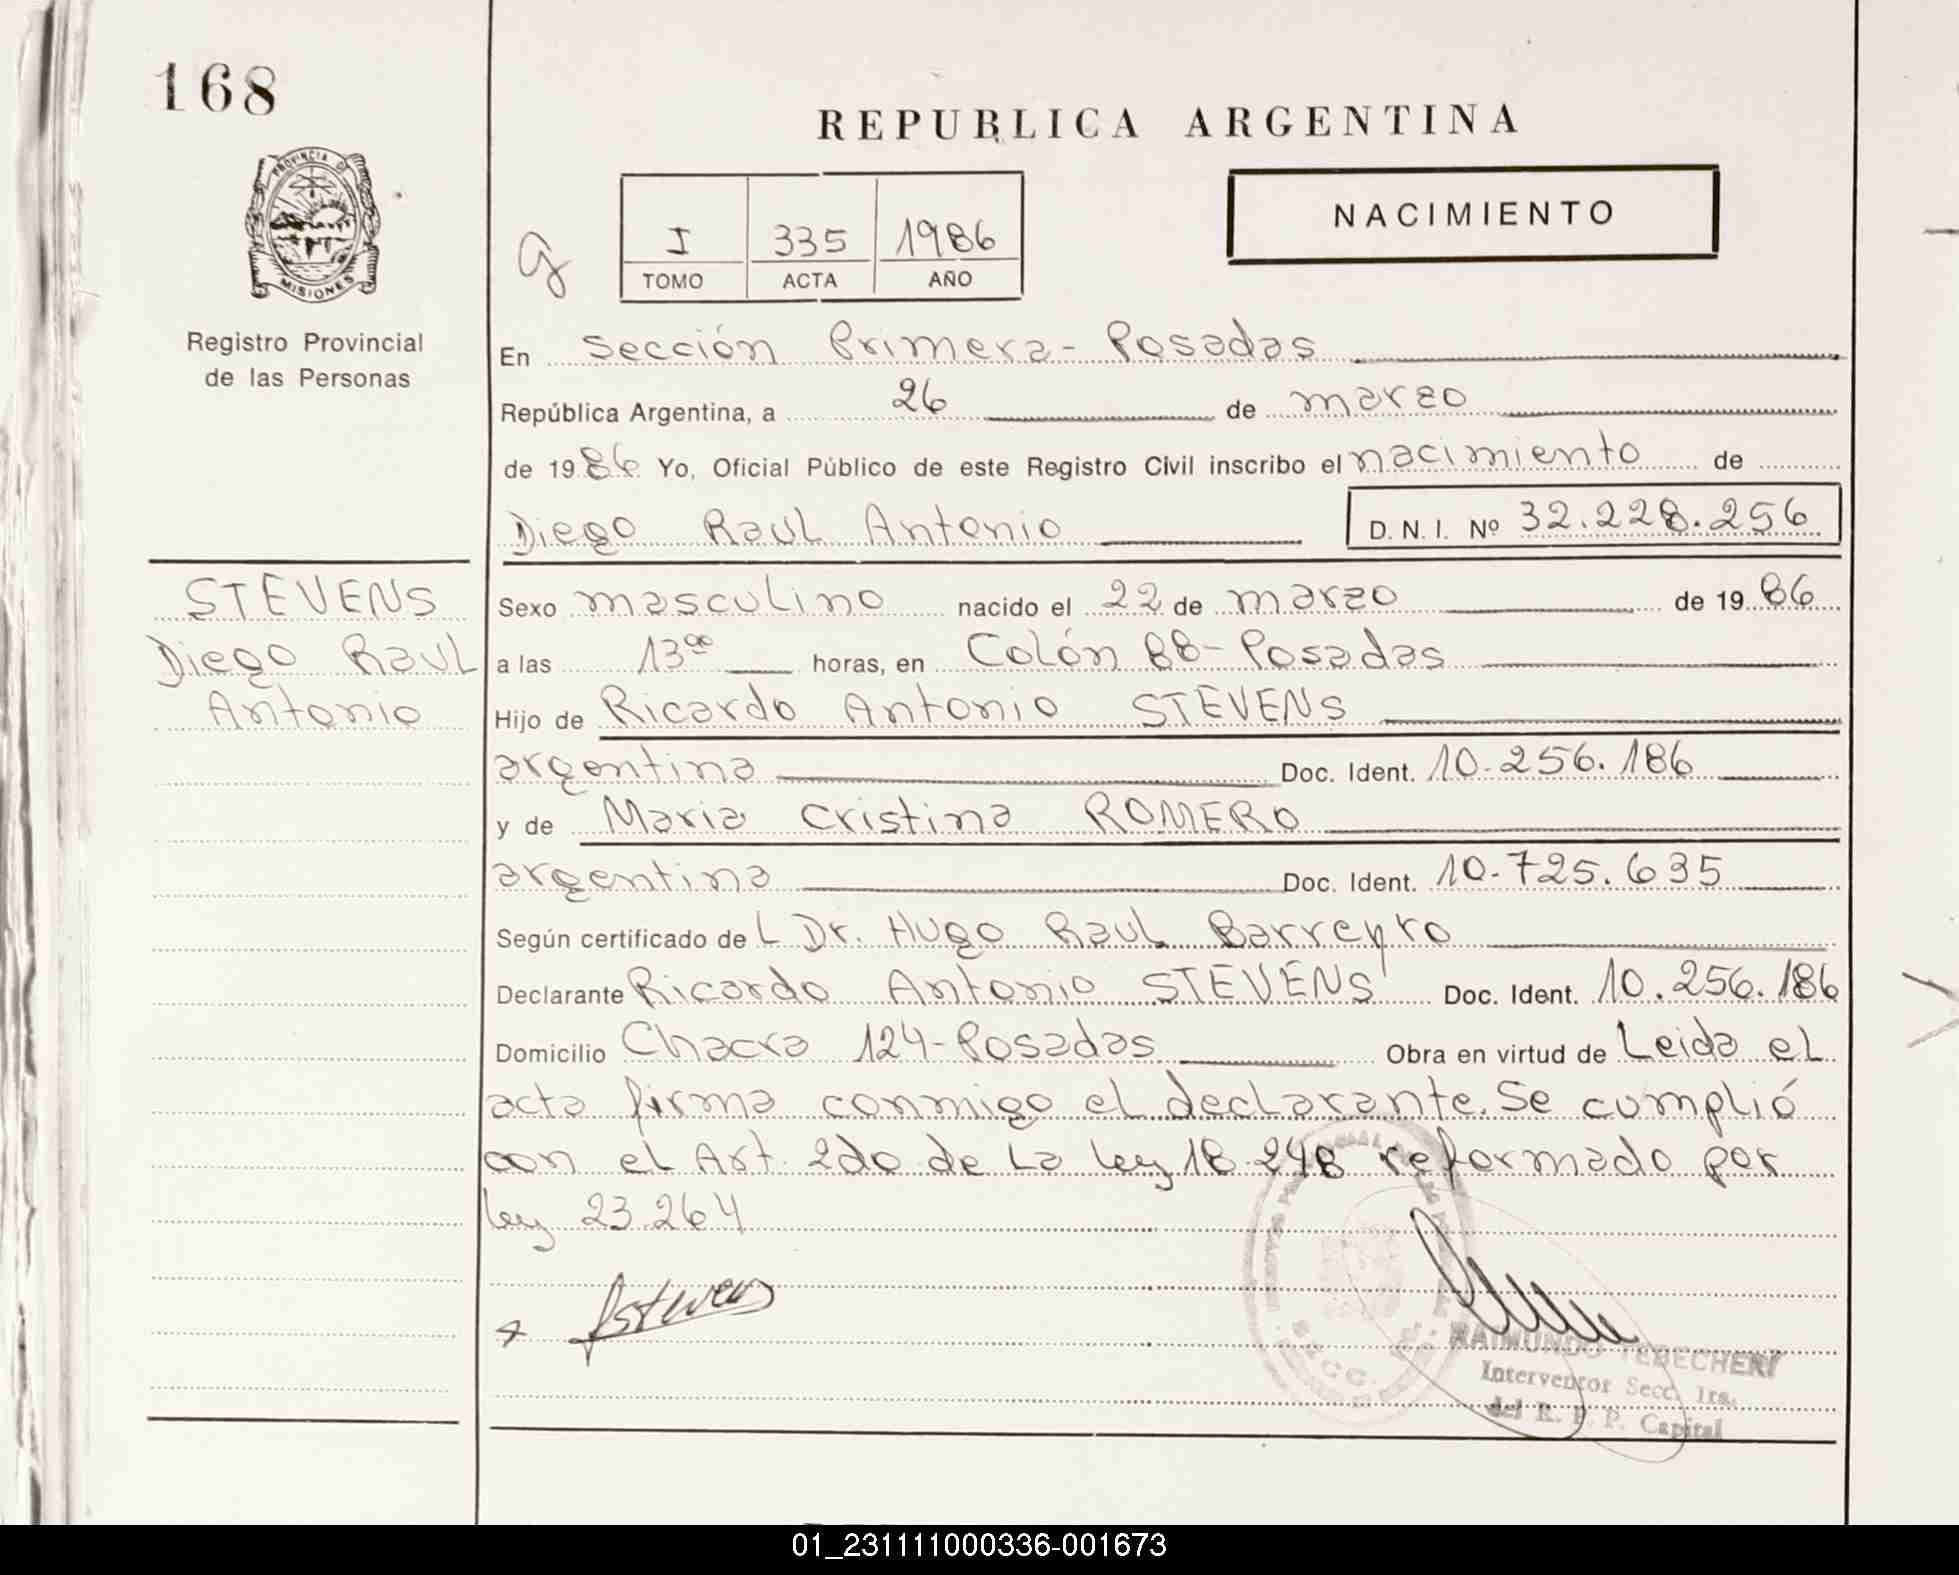 168
REPUBLICA ARGENTINA
PROVINCIA D
MISIONES
NACIMIENTO
g
I 335 1986
TOMO ACTA AÑO
Registro Provincial
de las Personas
En Sección Primera - Posadas
República Argentina, a 26 de marzo
de 1986 Yo, Oficial Público de este Registro Civil inscribo el nacimiento de
Diego Raul Antonio D.N.I. Nº 32.228.256
STEVENS
Diego Raul
Antonio
Sexo masculino nacido el 22 de marzo de 1986
a las 13 00 horas, en Colón 88 - Posadas
Hijo de Ricardo Antonio STEVENS
argentina Doc. Ident. 10.256.186
y de Maria Cristina ROMERO
argentina Doc. Ident. 10.725.635
Según certificado de L Dr. Hugo Raul Barreyro
Declarante Ricardo Antonio STEVENS Doc. Ident. 10.256.186
Domicilio Chacra 124 - Posadas Obra en virtud de Leida el
acta firma conmigo el declarante. Se cumplió
con el Art. 2do de la ley 18.248 reformado por
ley 23.264
x Stevens
RAIMUNDO TEBECHERI
Interventor Secc. 1ra.
del R. P. P. Capital
01_231111000336-001673